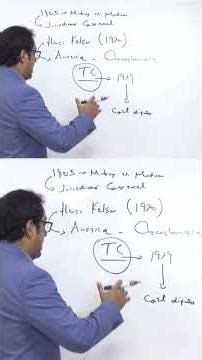 1803 → Mabury vs Madison
Judicial Control
Hans Kelsen (1920)
Austria - Czechoslovakia
TC → 1929
Cast dipu
1803 → Mabury vs Madison
Judicial Control
Hans Kelsen (1920)
Austria - Czechoslovakia
TC → 1929